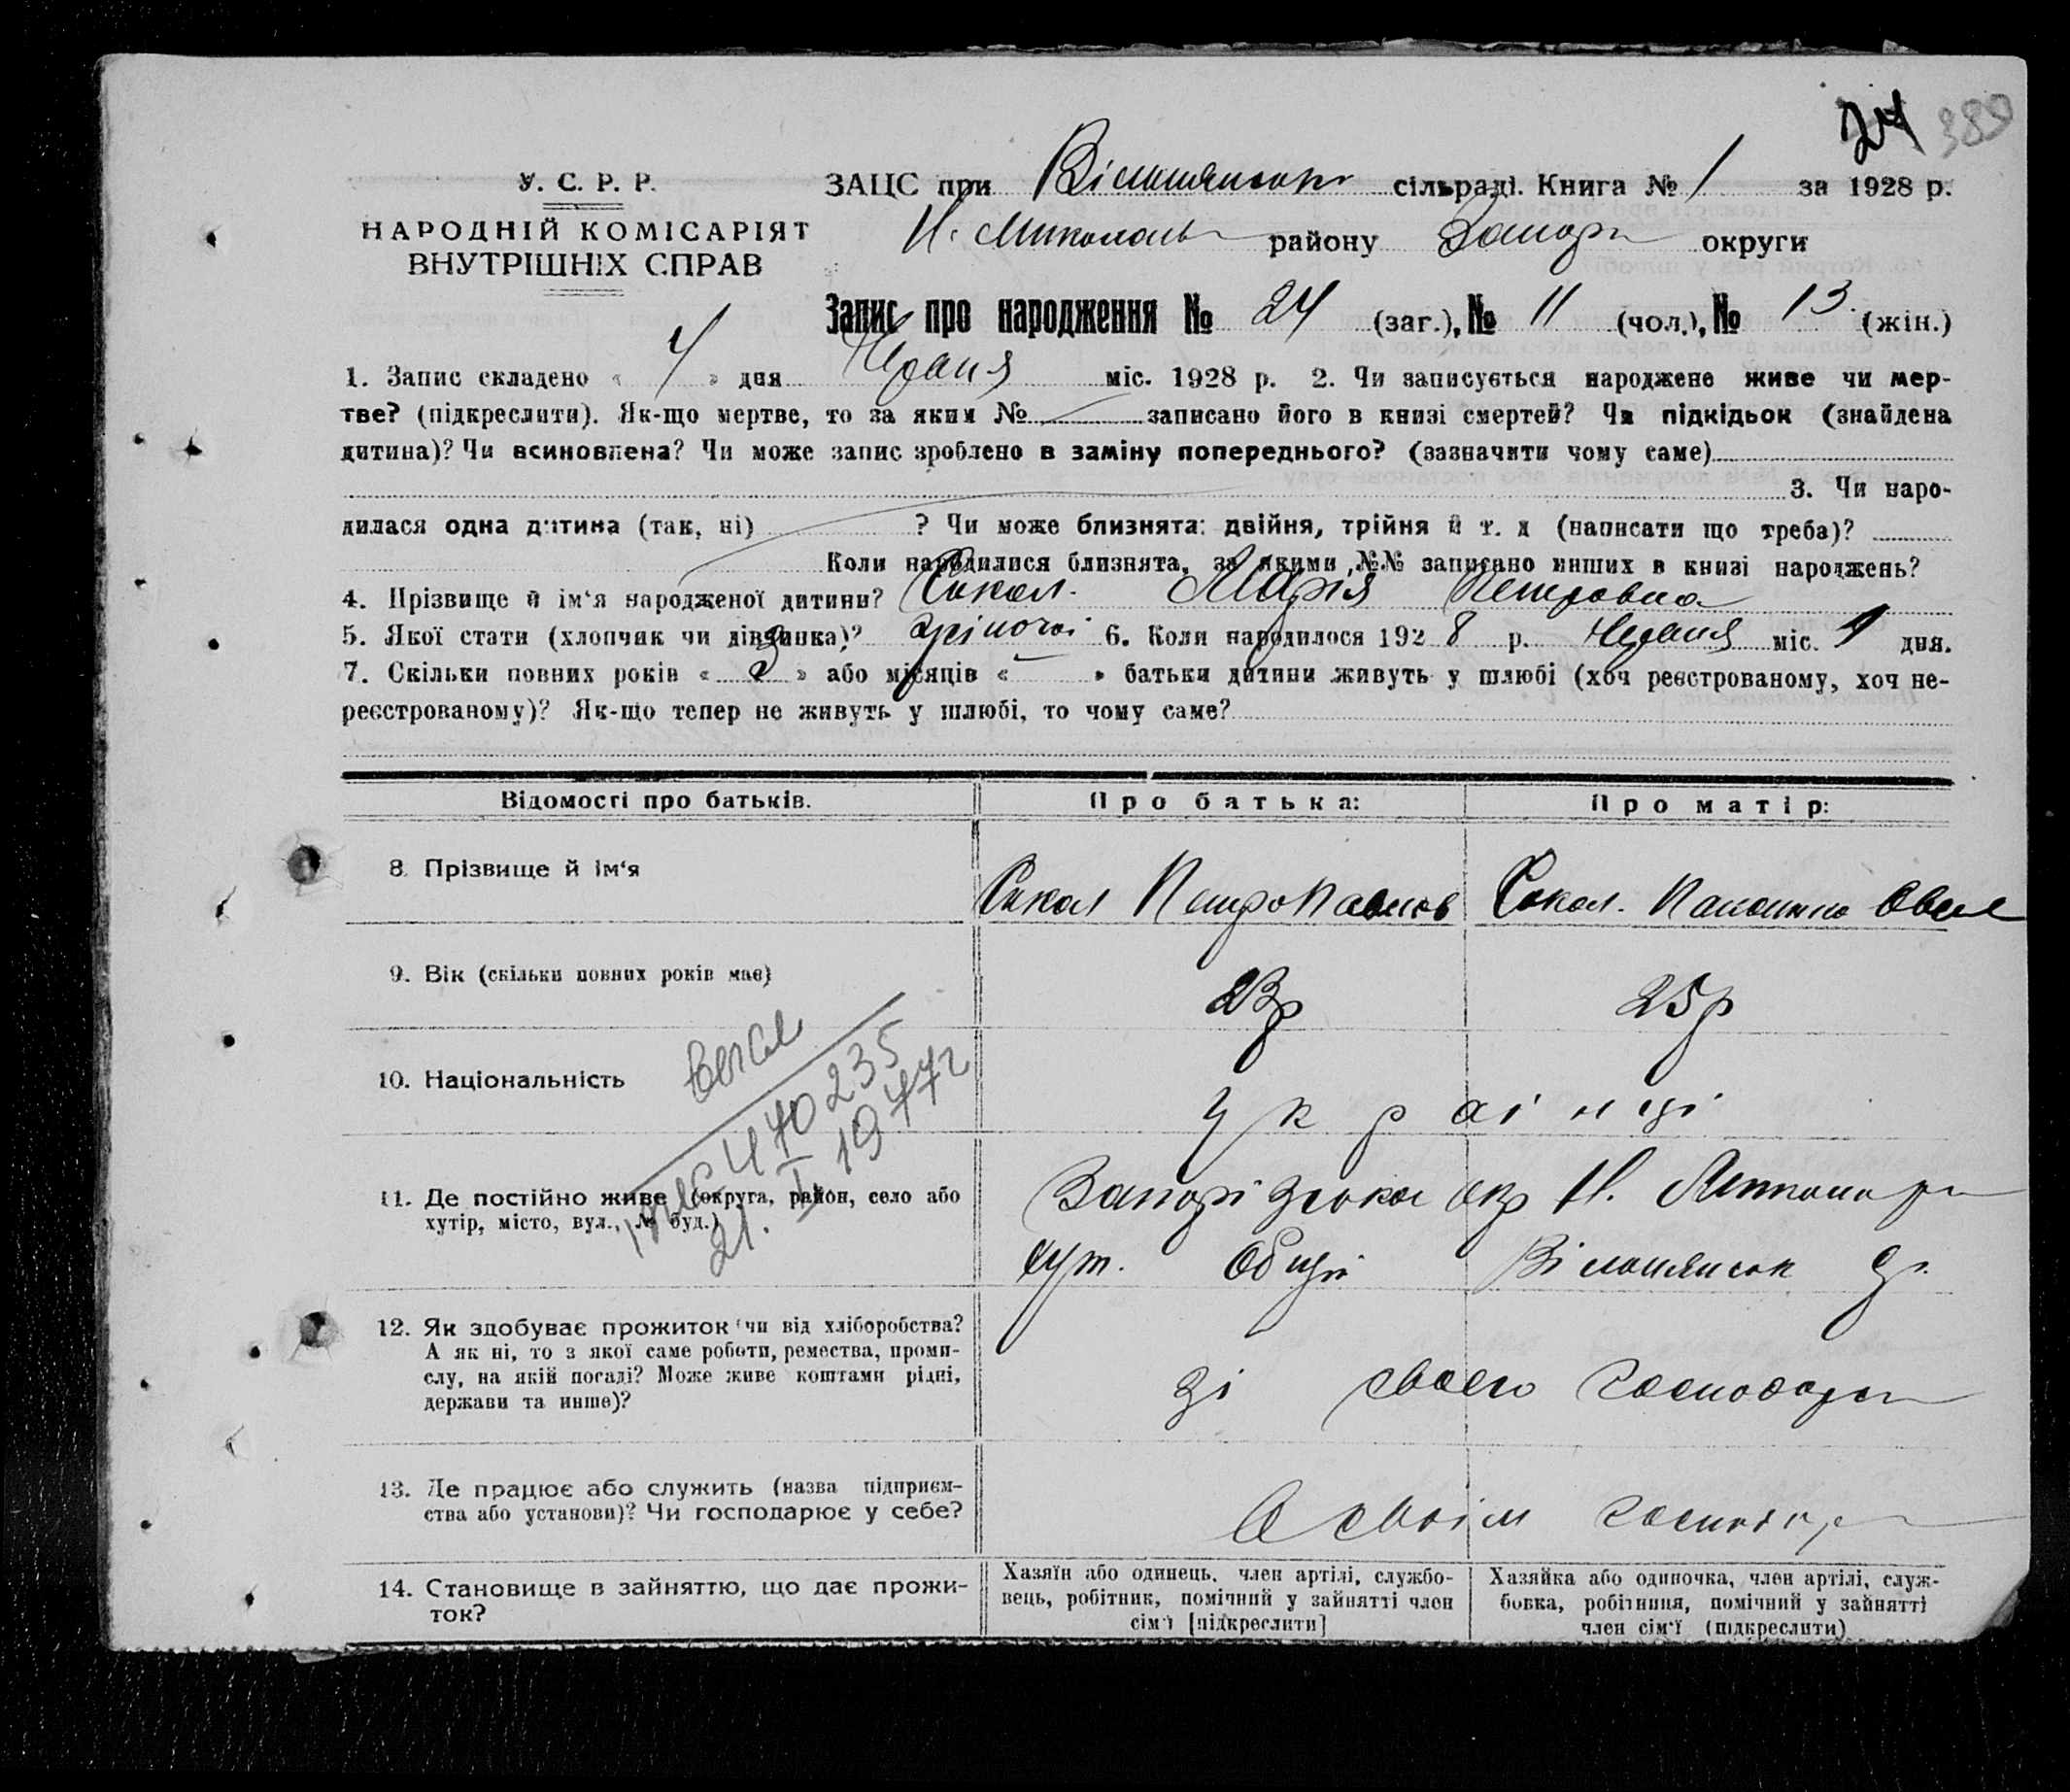 24 389
У. С. Р. Р.
НАРОДНІЙ КОМІСАРІЯТ
ВНУТРІШНІХ СПРАВ
ЗАЦС при сільраді. Книга № 1 за 1928 р.
району Запорз округи
Запис про народження № 24 (заг.), № 11 (чол.), № 13 (жін.)
1. Запис складено « 4 » дня Червня міс. 1928 р. 2. Чи записується народжене живе чи мер-
тве? (підкреслити). Як-що мертве, то за яким № записано його в книзі смертей? Чи підкідьок (знайдена
дитина)? Чи всиновлена? Чи може запис зроблено в заміну попереднього? (зазначити чому саме)
3. Чи наро-
дилася одна дитина (так, ні) ? Чи може близнята: двійня, трійня й т. д (написати що треба)?
Коли народилися близнята, за якими №№ записано инших в книзі народжень?
4. Прізвище й ім‘я народженої дитини? Сокол Марія Петровна
5. Якої стати (хлопчик чи дівчинка)? жіночої 6. Коли народилося 1928 р. Червня міс. 1 дня.
7. Скільки повних років « 3 » або місяців « – » батьки дитини живуть у шлюбі (хоч реєстрованому, хоч не-
реєстрованому)? Як-що тепер не живуть у шлюбі, то чому саме?
Відомості про батьків. Про батька: Про матір:
8. Прізвище й ім‘я Сокол Петро Павлов Сокол
9. Вік (скільки повних років має) 23р 25р
10. Національність українці
470235
21. I 1977г
11. Де постійно живе (округа, район, село або
хутір, місто, вул., № буд.)
Запорізська окр Н.
хут.
12. Як здобуває прожиток (чи від хліборобства?
А як ні, то з якої саме роботи, ремества, проми-
слу, на якій посаді? Може живе коштами рідні,
держави та инше)?
зі свого господарс
13. Де працює або служить (назва підприєм-
ства або установи)? Чи господарює у себе?
в своїм господар
14. Становище в зайняттю, що дає прожи-
ток?
Хазяїн або одинець, член артілі, службо-
вець, робітник, помічний у зайнятті член
сім‘ї [підкреслити]
Хазяйка або одиночка, член артілі, служ-
бовка, робітниця, помічний у зайнятті
член сім‘ї (підкреслити)